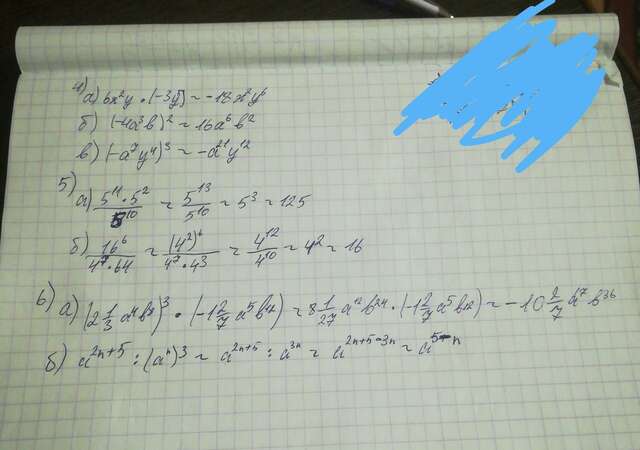 4) а) 6x²y · (-3y⁵) = -18x²y⁶
б) (-4a³b)² = 16a⁶b²
в) (-a⁷y⁴)³ = -a²¹y¹²
5) а) 5¹¹·5²/5¹⁰ = 5¹³/5¹⁰ = 5³ = 125
б) 16⁶/4⁷·64 = (4²)⁶/4⁷·4³ = 4¹²/4¹⁰ = 4² = 16
6) а) (2 1/3 a⁴b⁸)³ · (-1 2/7 a⁵b¹²) = 8 1/27 a¹²b²⁴ · (-1 2/7 a⁵b¹²) = -10 2/7 a¹⁷b³⁶
б) a²ⁿ⁺⁵ : (aⁿ)³ = a²ⁿ⁺⁵ : a³ⁿ = a²ⁿ⁺⁵⁻³ⁿ = a⁵⁻ⁿ